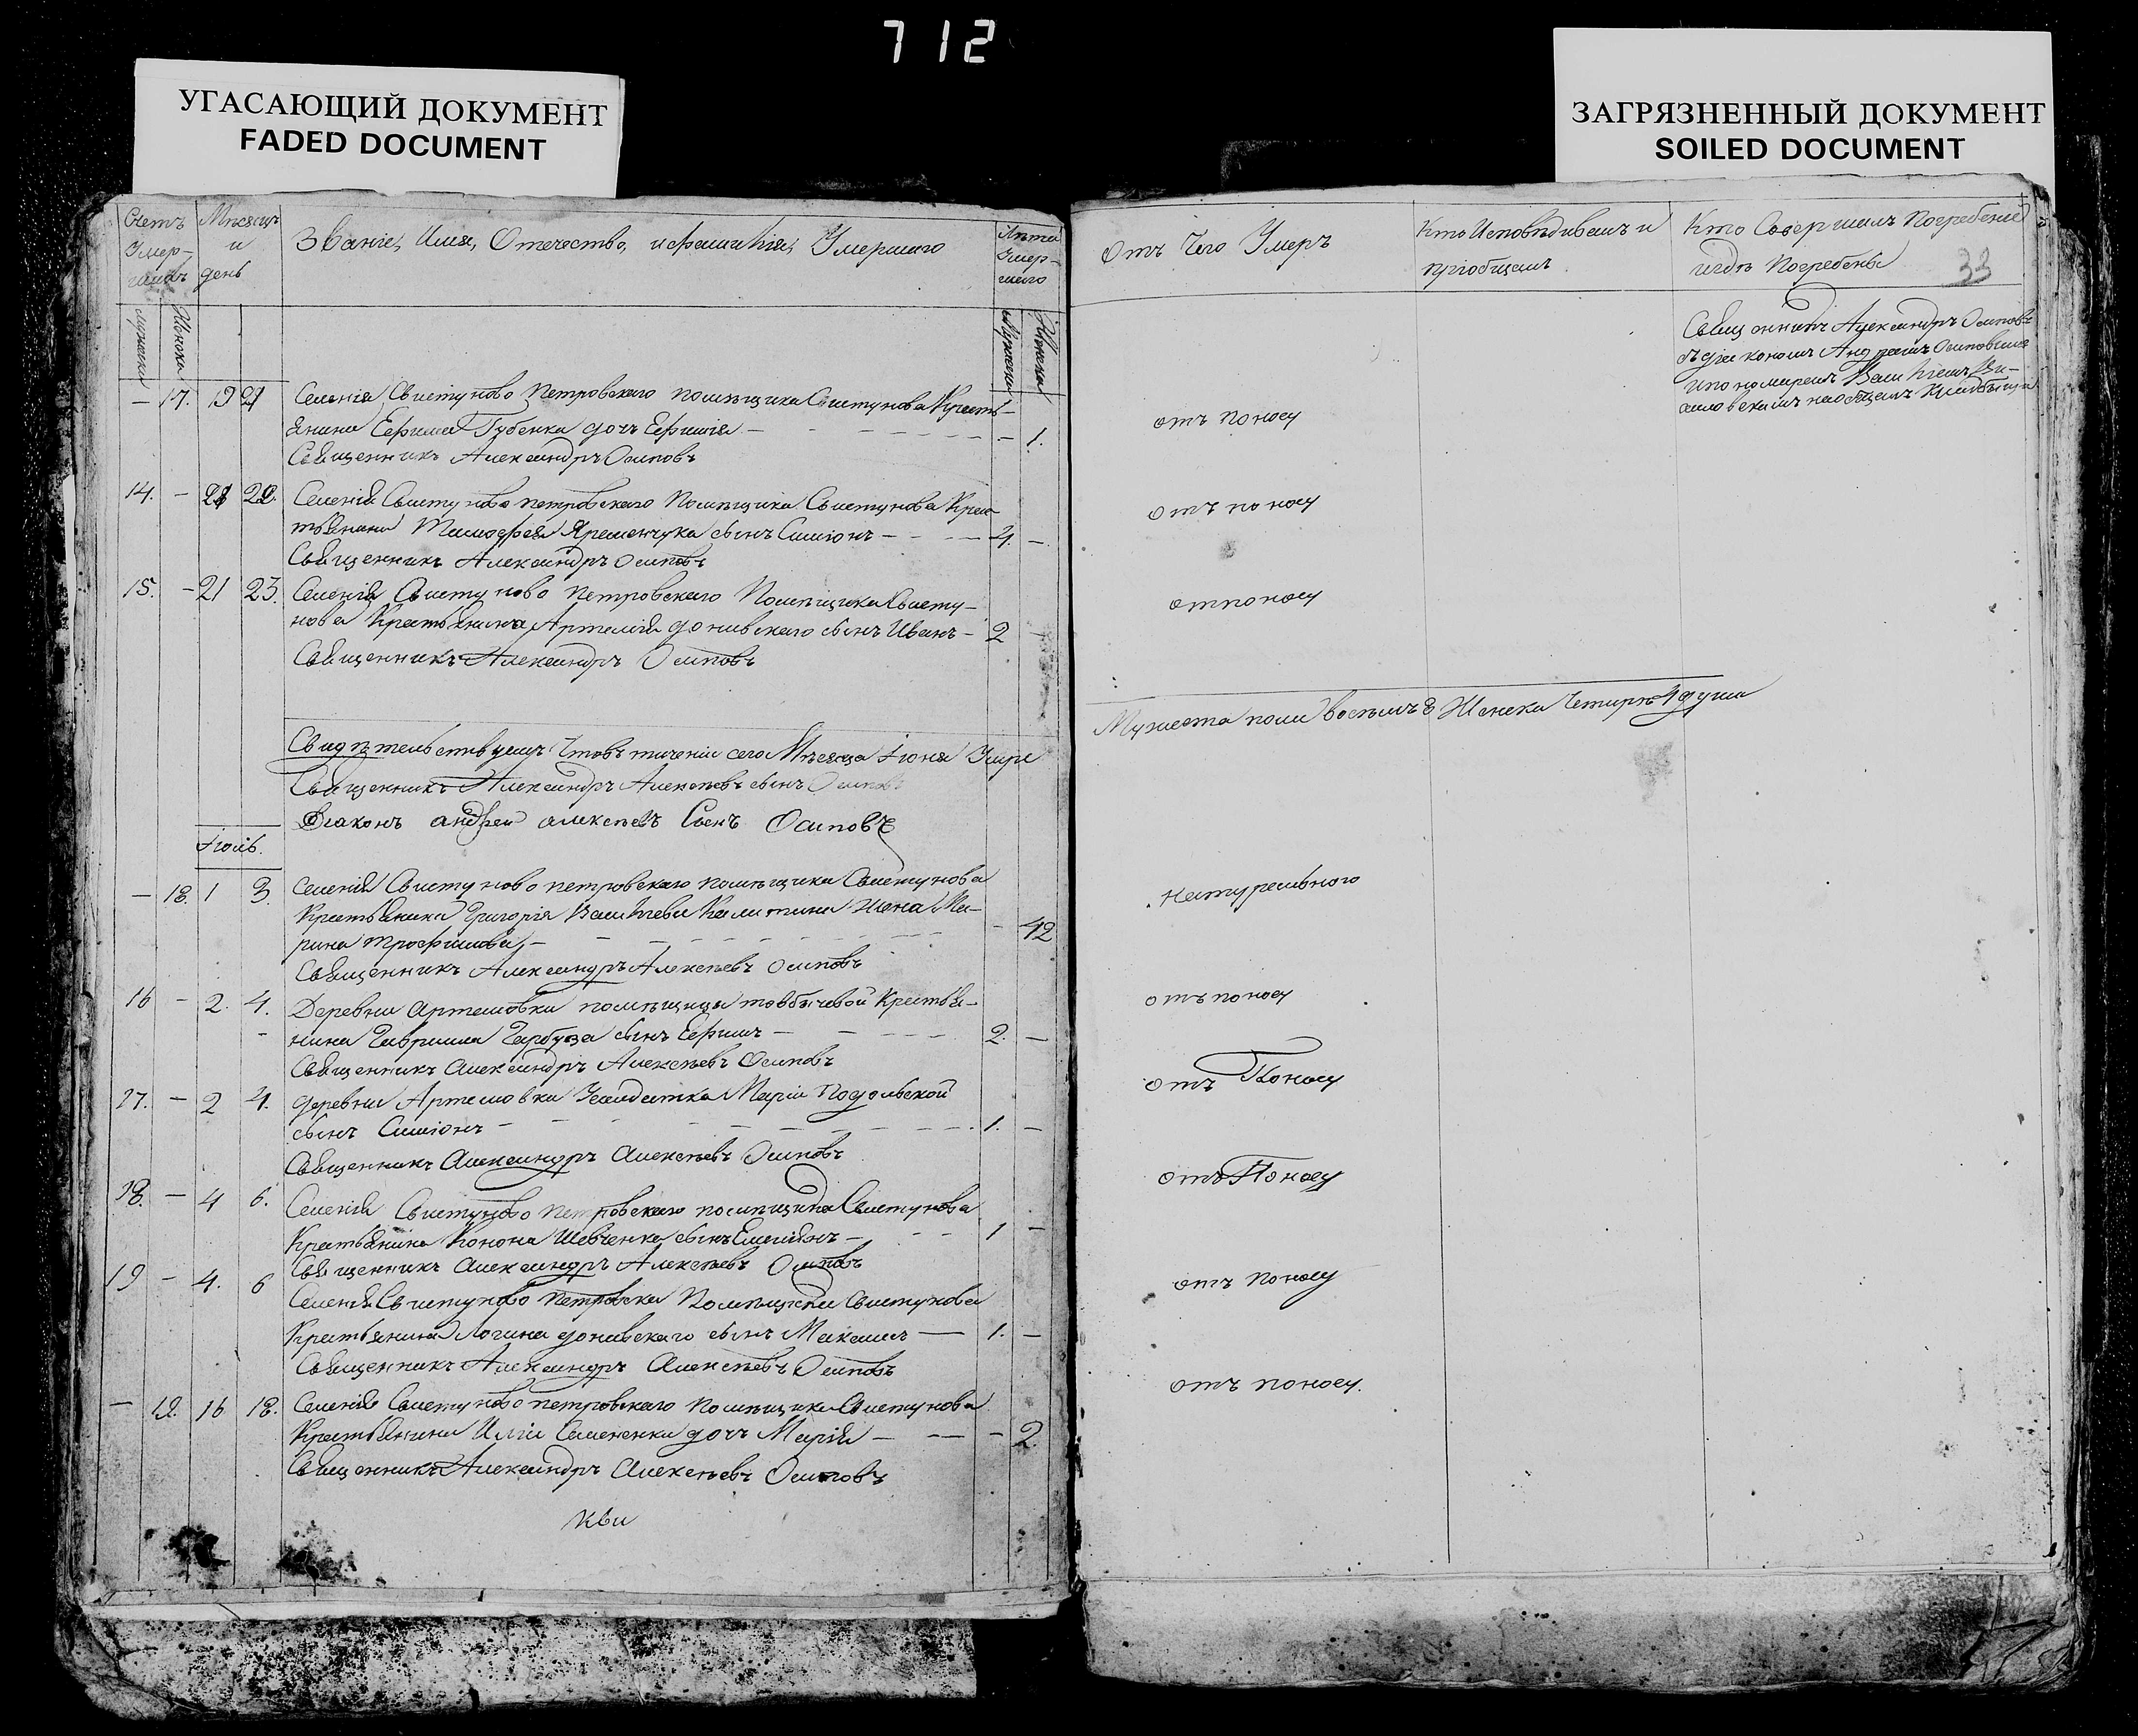 712
УГАСАЮЩИЙ ДОКУМЕНТ
FADED DOCUMENT
ЗАГРЯЗНЕННЫЙ ДОКУМЕНТ
SOILED DOCUMENT
Счетъ Умер-шихъ
Мѣсяцъ и день
Званіе, Имя, Отечество, и фамилія, Умершаго
Лѣта Умер-шаго
мужеска Женска
Мужеска Женска
– 17. 19 21 Селенія Свистуново Петровскаго помѣщика Свистунова Кресть-
янина Ефима Губенка дочъ Ефимія – – 1.
Священникъ Александръ Осиповъ
14. – 21 22. Селенія Свистуново петровскаго Помѣщика Свистунова Крес-
тьянина Тимофея Яременчука сынъ Симіонъ – 4. –
Священникъ Александръ Осиповъ
15. – 21 23. Селенія Свистуново Петровскаго Помѣщика Свисту-
нова Крестьянина Артемія донивскаго сынъ Иванъ – 2 –
Священникъ Александръ Осиповъ
Свидѣтельствуемъ Чтовъ тиченіи сего Мѣсяца Іюня Умре
Священникъ Александръ Алексѣевъ сынъ Осиповъ
Діаконъ андреи алексѣевъ Сынъ Осиповъ
Іюль.
– 18. 1 3. Селенія Свистуново петровскаго помѣщика Свистунова
Крестьянина Григорія Васильева Калитина Жена Ма-
рина трофимова, – – 42
Священникъ Александръ Алексѣевъ Осиповъ
16 – 2. 4. Деревни Артемовки помѣщицы товбичевой Крестья-
нина Гавриила Гарбуза сынъ Ефимъ – 2. –
Священникъ Александръ Алексѣевъ Осиповъ
17. – 2 4. деревни Артемовки Салдатка Маріи Подольской
сынъ Симіонъ – 1. –
Священникъ Александръ Алексѣевъ Осиповъ
18. – 4 6. Селенія Свистуново Петровскаго помѣщика Свистунова
Крестьянина Конона Шевченка сынъ Емеліянъ – 1 –
Священникъ Александръ Алексѣевъ Осиповъ
19 – 4. 6 Селенія Свистуново Петровска Помѣщика Свистунова
Крестьянина Логина донивскаго сынъ Максимъ – 1. –
Священникъ Александръ Алексѣевъ Осиповъ
– 19. 16 18. Селенія Свистуново петровскаго Помѣщика Свистунова
Крестьянина Иліи Симененка дочъ Марія – – 2.
Священникъ Александръ Алексѣевъ Осиповъ
Отъ Чего Умеръ
Кто Исповѣдивалъ и пріобщалъ
Кто Совершалъ Погребеніе игдѣ Погребены
33
Священникъ Александръ Осиповъ
съ діакономъ Андреемъ Осиповымъ
ипономаремъ
наобщемъ Кладбищи
отъ поносу
отъ поносу
отпоносу
Мужеска пола восѣмъ 8 Женска Четирѣ 4 души
натуральнаго
отъ поносу
отъ Поносу
отъ Поносу
отъ поносу
отъ поносу.